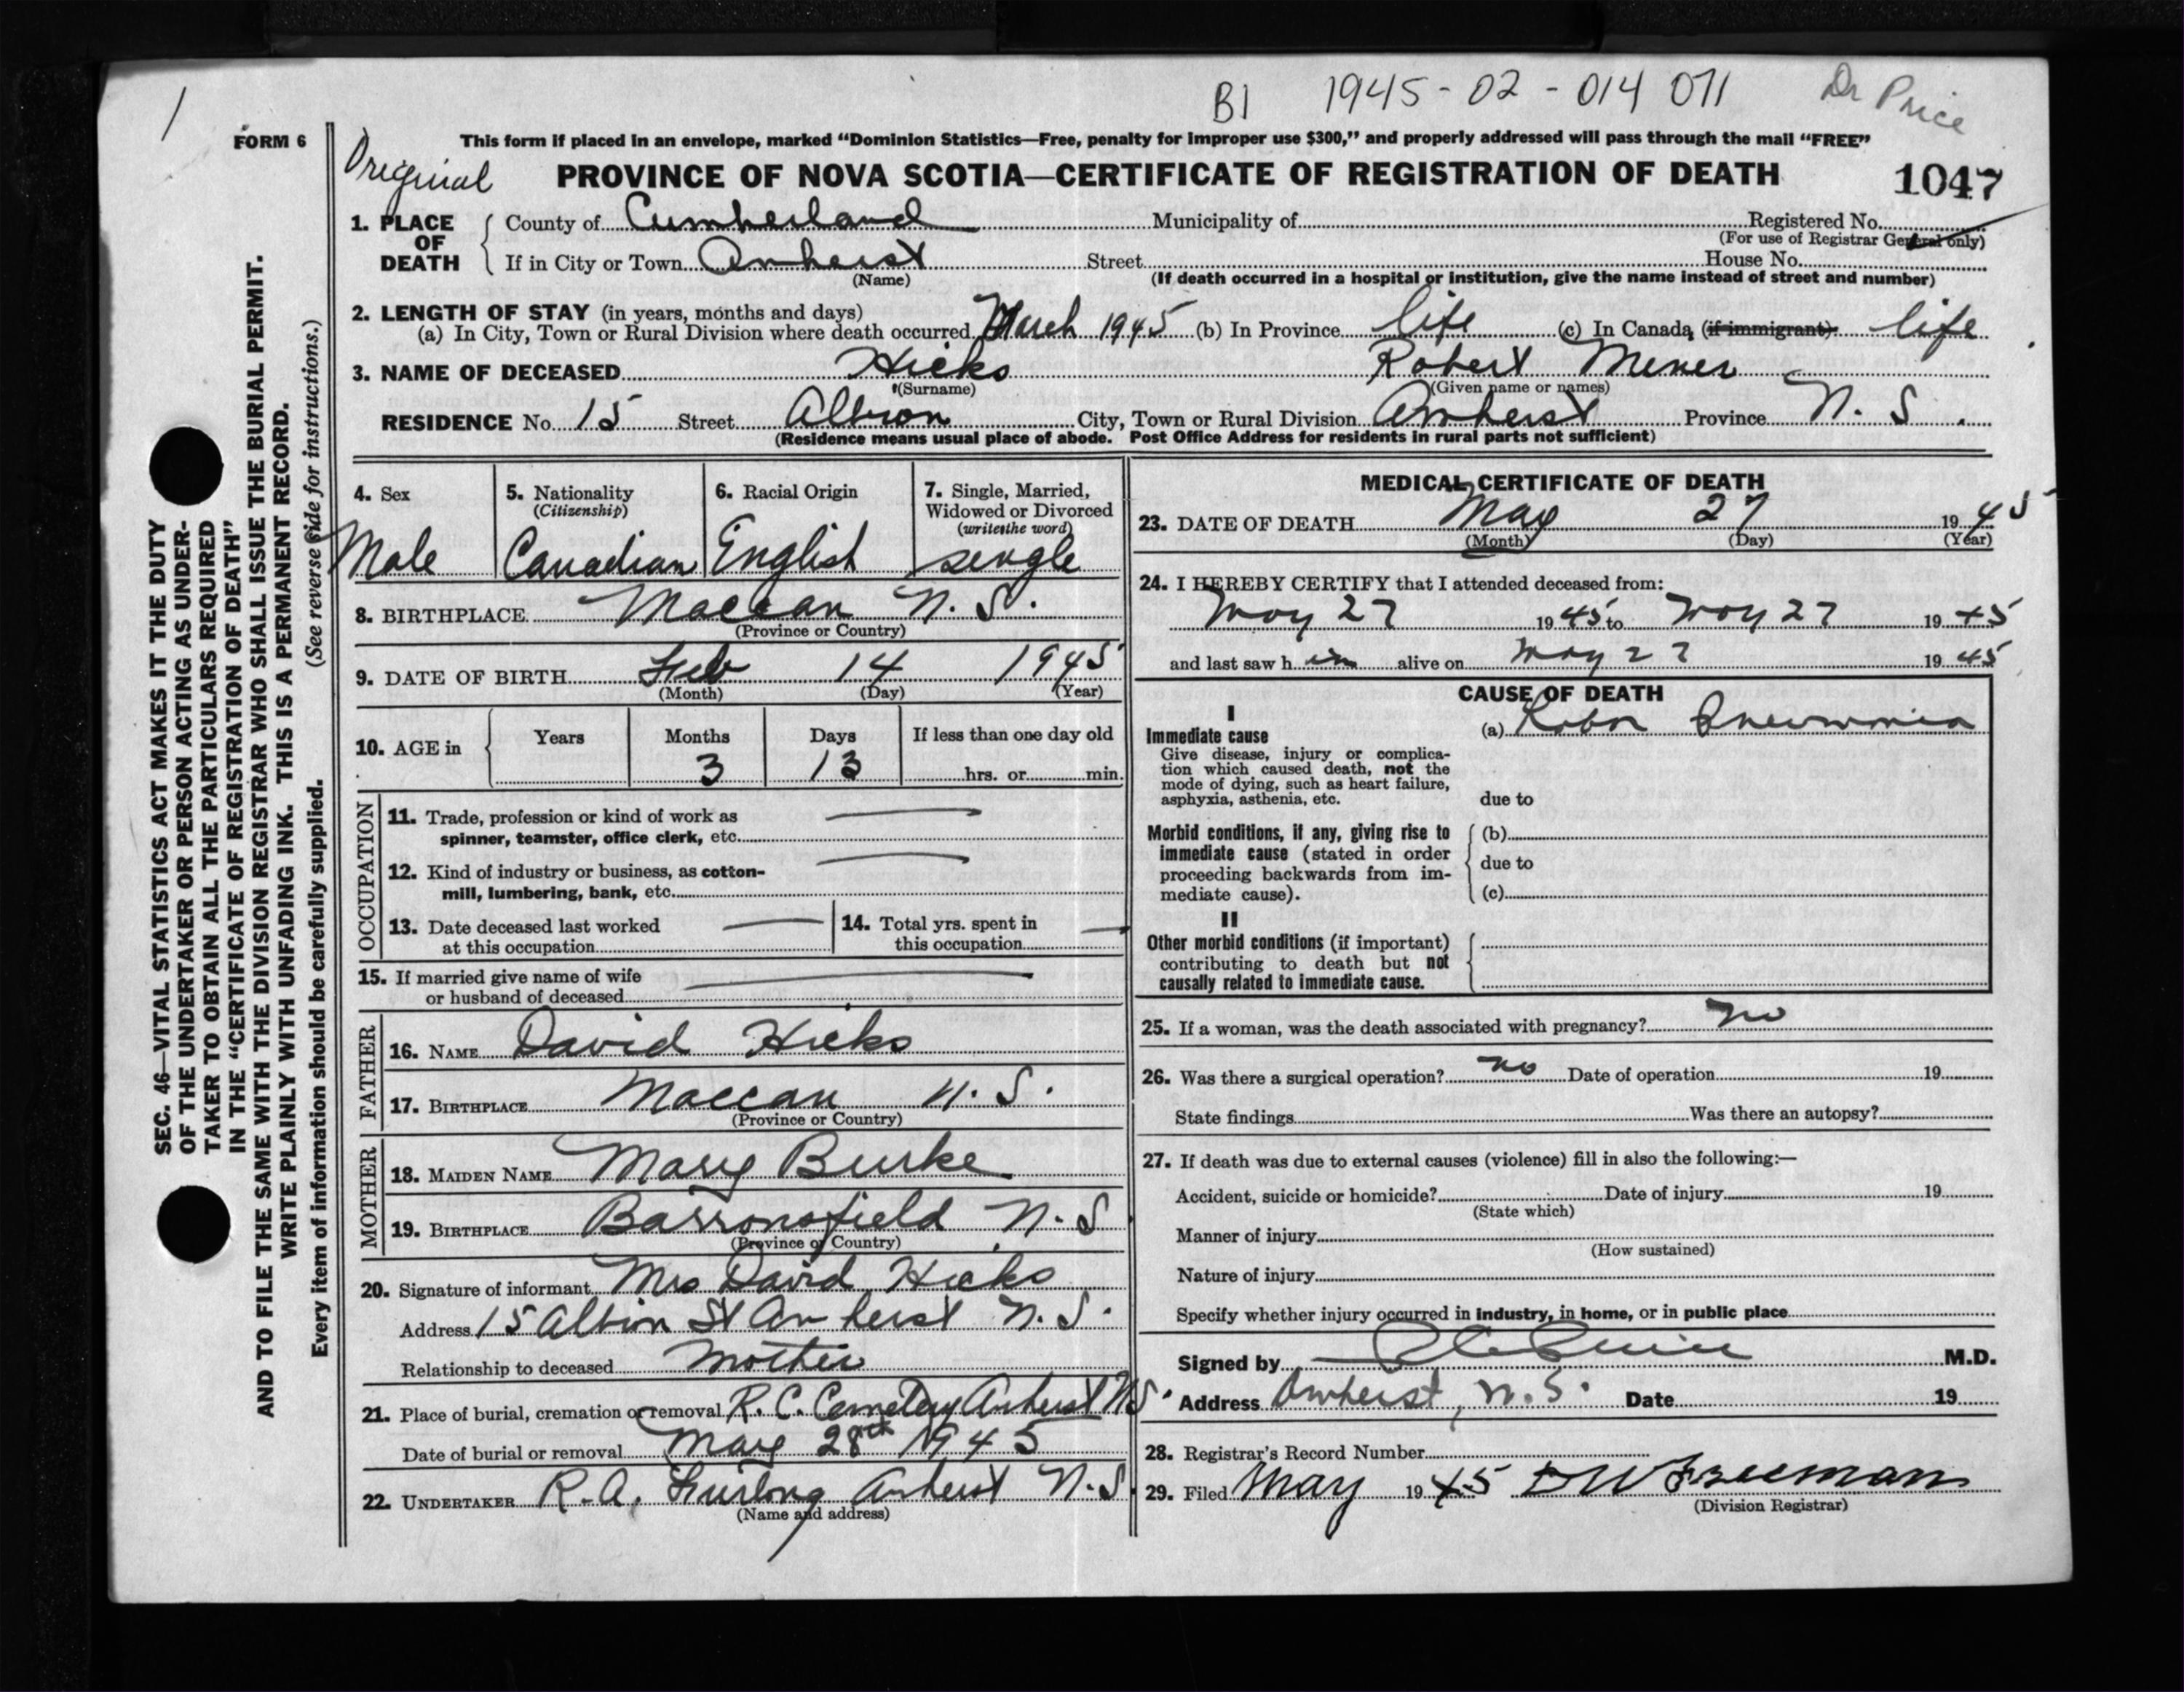 B1 1945-02-014 071 Dr Price
1
FORM 6
This form if placed in an envelope, marked "Dominion Statistics—Free, penalty for improper use $300," and properly addressed will pass through the mail "FREE"
Original
PROVINCE OF NOVA SCOTIA—CERTIFICATE OF REGISTRATION OF DEATH 1047
1. PLACE OF DEATH County of Cumberland Municipality of Registered No.
(For use of Registrar General only)
If in City or Town Amherst Street House No.
(Name) (If death occurred in a hospital or institution, give the name instead of street and number)
2. LENGTH OF STAY (in years, months and days)
(a) In City, Town or Rural Division where death occurred March 1945 (b) In Province life (c) In Canada (if immigrant) life
3. NAME OF DECEASED Hicks Robert
(Surname) (Given name or names)
RESIDENCE No. 15 Street Albion City, Town or Rural Division Amherst Province N. S.
(Residence means usual place of abode. Post Office Address for residents in rural parts not sufficient)
4. Sex
Male
5. Nationality
(Citizenship)
Canadian
6. Racial Origin
English
7. Single, Married,
Widowed or Divorced
(write the word)
single
8. BIRTHPLACE Maccan N. S.
(Province or Country)
9. DATE OF BIRTH Feb 14 1945
(Month) (Day) (Year)
10. AGE in Years Months Days If less than one day old
3 13 hrs. or min.
OCCUPATION
11. Trade, profession or kind of work as
spinner, teamster, office clerk, etc.
12. Kind of industry or business, as cotton-
mill, lumbering, bank, etc.
13. Date deceased last worked
at this occupation
14. Total yrs. spent in
this occupation
15. If married give name of wife
or husband of deceased
FATHER
16. NAME David Hicks
17. BIRTHPLACE Maccan N. S.
(Province or Country)
MOTHER
18. MAIDEN NAME Mary Burke
19. BIRTHPLACE Barronsfield N. S
(Province or Country)
20. Signature of informant Mrs David Hicks
Address 15 Albion St Amherst N. S.
Relationship to deceased Mother
21. Place of burial, cremation or removal R. C. Cemetery Amherst NS
Date of burial or removal May 28th 1945
22. UNDERTAKER R. A. Furlong Amherst N. S.
(Name and address)
MEDICAL CERTIFICATE OF DEATH
23. DATE OF DEATH May 27 1945
(Month) (Day) (Year)
24. I HEREBY CERTIFY that I attended deceased from:
May 27 1945 to May 27 1945
and last saw h im alive on May 27 1945
CAUSE OF DEATH
I
Immediate cause
Give disease, injury or complica-
tion which caused death, not the
mode of dying, such as heart failure,
asphyxia, asthenia, etc.
(a) Lobar Pneumonia
due to
Morbid conditions, if any, giving rise to
immediate cause (stated in order
proceeding backwards from im-
mediate cause).
(b)
due to
(c)
II
Other morbid conditions (if important)
contributing to death but not
causally related to immediate cause.
25. If a woman, was the death associated with pregnancy? no
26. Was there a surgical operation? no Date of operation 19
State findings Was there an autopsy?
27. If death was due to external causes (violence) fill in also the following:—
Accident, suicide or homicide? Date of injury 19
(State which)
Manner of injury
(How sustained)
Nature of injury
Specify whether injury occurred in industry, in home, or in public place
Signed by M.D.
Address Amherst, N. S. Date 19
28. Registrar's Record Number
29. Filed May 1945 D W Freeman
(Division Registrar)
SEC. 46—VITAL STATISTICS ACT MAKES IT THE DUTY
OF THE UNDERTAKER OR PERSON ACTING AS UNDER-
TAKER TO OBTAIN ALL THE PARTICULARS REQUIRED
IN THE "CERTIFICATE OF REGISTRATION OF DEATH"
AND TO FILE THE SAME WITH THE DIVISION REGISTRAR WHO SHALL ISSUE THE BURIAL PERMIT.
WRITE PLAINLY WITH UNFADING INK. THIS IS A PERMANENT RECORD.
Every item of information should be carefully supplied. (See reverse side for instructions.)